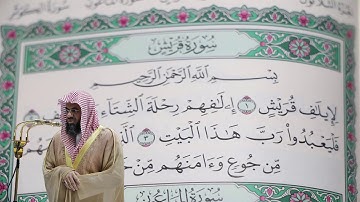 سُورَةُ قُرَيْشٍ
بِسْمِ اللَّهِ الرَّحْمَٰنِ الرَّحِيمِ
لِإِيلَٰفِ قُرَيْشٍ ۝١ إِۦلَٰفِهِمْ رِحْلَةَ الشِّتَآءِ
فَلْيَعْبُدُوا۟ رَبَّ هَٰذَا الْبَيْتِ ۝٣ الَّذِي
مِّن جُوعٍ وَءَامَنَهُم مِّنْ
سُورَةُ الْمَاعُونِ